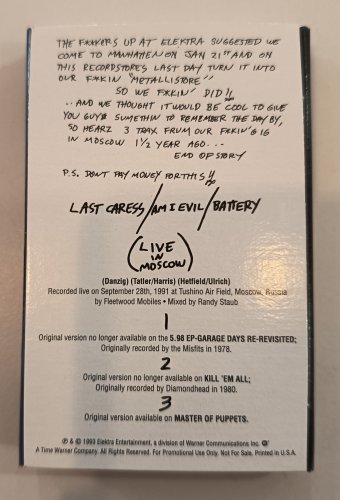 THE F**KERS UP AT ELEKTRA SUGGESTED WE
COME TO MANHATTEN ON JAN 21ST AND ON
THIS RECORDSTORES LAST DAY TURN IT INTO
OUR F*KKIN "METALLISTORE"
SO WE F*KKIN' DID!!
..AND WE THOUGHT IT WOULD BE COOL TO GIVE
YOU GUYS SUMETHIN TO REMEMBER THE DAY BY,
SO HEARZ 3 TRAX FRUM OUR F*KKIN' GIG
IN MOSCOW 1½ YEAR AGO...
END OF STORY
P.S. DONT PAY MONEY FOR THIS!!
LAST CARESS/AM I EVIL/BATTERY
(LIVE
IN
MOSCOW)
(Danzig) (Tatler/Harris) (Hetfield/Ulrich)
Recorded live on September 28th, 1991 at Tushino Air Field, Moscow, Russia
by Fleetwood Mobiles • Mixed by Randy Staub
1
Original version no longer available on the 5.98 EP-GARAGE DAYS RE-REVISITED;
Originally recorded by the Misfits in 1978.
2
Original version no longer available on KILL 'EM ALL;
Originally recorded by Diamondhead in 1980.
3
Original version available on MASTER OF PUPPETS.
℗ & © 1993 Elektra Entertainment, a division of Warner Communications Inc.
A Time Warner Company. All Rights Reserved. For Promotional Use Only. Not For Sale. Printed in U.S.A.